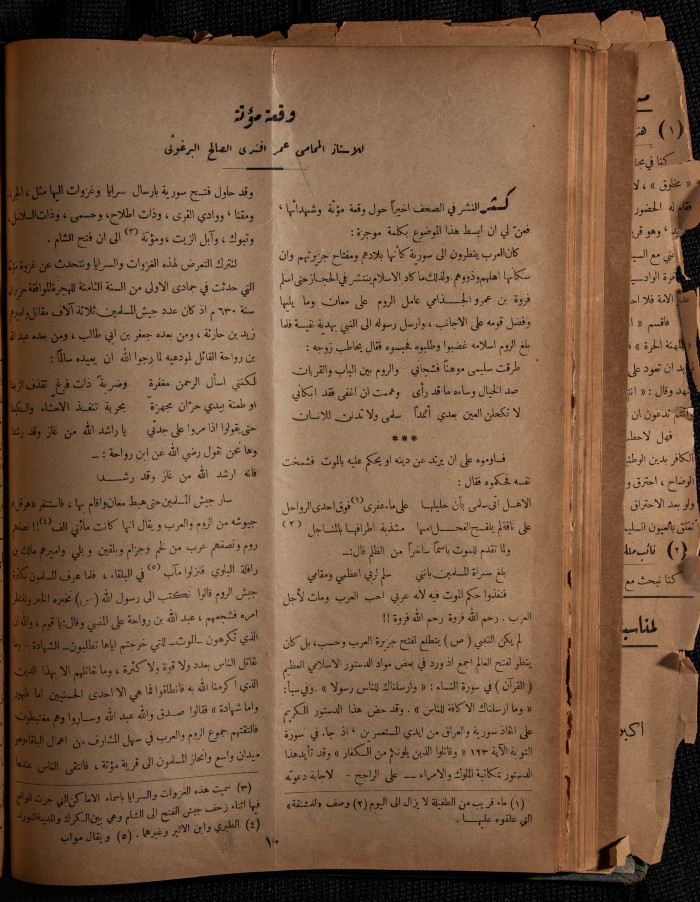 وقعة مؤتة
للاستاذ المحامي عمر افندي الصالح البرغوثي
كثر النشر في الصحف اخيراً حول وقعة مؤتة وشهدائها ،
فعنّ لي ان ابسط هذا الموضوع بكلمة موجزة :
كان العرب ينظرون الى سورية كأنها بلادهم ومفتاح جزيرتهم وان
سكانها اهلهم وذووهم ولذلك ما كاد الاسلام ينتشر في الحجاز حتى اسلم
فروة بن عمرو الجذامي عامل الروم على معان وما يليها
وفضل قومه على الاجانب ، وارسل رسوله الى النبي بهدية نفيسة فلما
بلغ الروم اسلامه غضبوا وطلبوه فحبسوه فقال يخاطب زوجه :
طرقت سليمى موهناً فشجاني والروم بين الباب والقربان
صد الخيال وساءه ما قد رأى وهممت ان اغفى فقد ابكاني
لا تكحلن العين بعدي أثمداً سلمى ولا تدنن للانسان
***
فساوموه على ان يرتد عن دينه او يحكم عليه بالموت فشمخت
نفسه فحكموه فقال :
الاهل اتى سلمى بأن حليلها على ماء عفرى (١) فوق احدى الرواحل
على ناقة لم يلقح الفحل امها مشذبة اطرافها بالمناجل (٢)
ولما تقدم للموت باسماً ساخراً من الظلم قال :ـ
بلغ سراة المسلمين بأنني سلم لربي اعظمي ومقامي
فنفذوا حكم الموت فيه لانه عربي احب العرب ومات لأجل
العرب . رحم الله فروة رحم الله فروة !!
لم يكن النبي (ص) يتطلع لفتح جزيرة العرب وحسب، بل كان
ينظر لفتح العالم اجمع اذ ورد في بعض مواد الدستور الاسلامي العظيم
( القرآن ) في سورة النساء : « وارسلناك للناس رسولا » . وفي سبأ:
« وما ارسلناك الا كافة للناس » . وقد حض هذا الدستور الكريم
على انقاذ سورية والعراق من ايدي المستعمرين ، اذ جاء في سورة
التوبة الآية ١٢٣ « وقاتلوا الذين يلونكم من الكفار » وقد تأيد هذا
الدستور بمكاتبة الملوك والامراء ـ على الراجح - لاجابة دعوته
(١) ماء قريب من الطفيلة لا يزال الى اليوم (٢) وصف « للمشنقة »
التي علقوه عليها .
وقد حاول فتح سورية بارسال سرايا وغزوات اليها مثل ،
ومقنا ، ووادي القرى ، وذات اطلاح، وحسمى ، وذات السلاسل،
وتبوك ، وآبل الزيت ، ومؤتة (٣) الى ان فتح الشام .
لنترك التعرض لهذه الغزوات والسرايا ونتحدث عن غزوة مؤتة
التي حدثت في جمادى الاولى من السنة الثامنة للهجرة الموافقة حزيران
سنة ٦٣٠ م اذ كان عدد جيش المسلمين ثلاثة آلاف مقاتل واميرهم
زيد بن حارثة ، ومن بعده جعفر بن ابي طالب ، ومن بعده عبد الله
بن رواحة القائل لمودعيه لما رجوا الله ان يعيده سالماً :
لكنني اسأل الرحمن مغفرة وضربة ذات فرغ تقذف الزبدا
او طعنة بيدي حرّان مجهزة بحربة تنفذ الاحشاء والكبدا
حتى يقولوا اذا مروا على جدثي يا راشد الله من غاز وقد رشدا
وها نحن نقول رضي الله عن ابن رواحة :ـ
فانه ارشد الله من غاز وقد رشدا
سار جيش المسلمين حتى هبط معان واقام بها ، فاستنفر « هرقل »
جيوشه من الروم والعرب ويقال انها كانت مائتي الف (٤) !! نصفهم
روم ونصفهم عرب من لخم وجزام وبلقين وبلي واميرهم مالك بن
رافلة البلوي فنزلوا مآب (٥) في البلقاء ، فلما عرف المسلمون بكثرة
جيش الروم قالوا نكتب الى رسول الله (ص) نخبره الخبر وننتظر
امره فشجعهم ، عبد الله بن رواحة على المضي وقال: يا قوم ، والله ان
الذي تكرهون ـ للموت ـ للتي خرجتم اياها تطلبون ـ الشهادة ـ وما
نقاتل الناس بعدد ولا قوة ولا كثرة ، وما نقاتلهم الا بهذا الدين
الذي اكرمنا الله به فانطلقوا فما هي الا احدى الحسنيين اما ظهور
واما شهادة » فقالوا صدق والله عبد الله وساروا وهم مغتبطون،
فالتقتهم جموع الروم والعرب في سهل المشارف من اعمال البلقاء وهو
ميدان واسع وانحاز المسلمون الى قرية مؤتة ، فالتقى الناس عندها
(٣) سميت هذه الغزوات والسرايا باسماء الاماكن التي جرت الوقائع
فيها اثناء زحف جيش الفتح الى الشام وهي بين الكرك والمدينة المنورة
(٤) الطبري وابن الاثير وغيرهما . (٥) ويقال مواب
١٠
(١)
كنا في مجا
« مخلوق » ، لا
فقام له الحضور
(٢) نائب
كنا نبحث مع